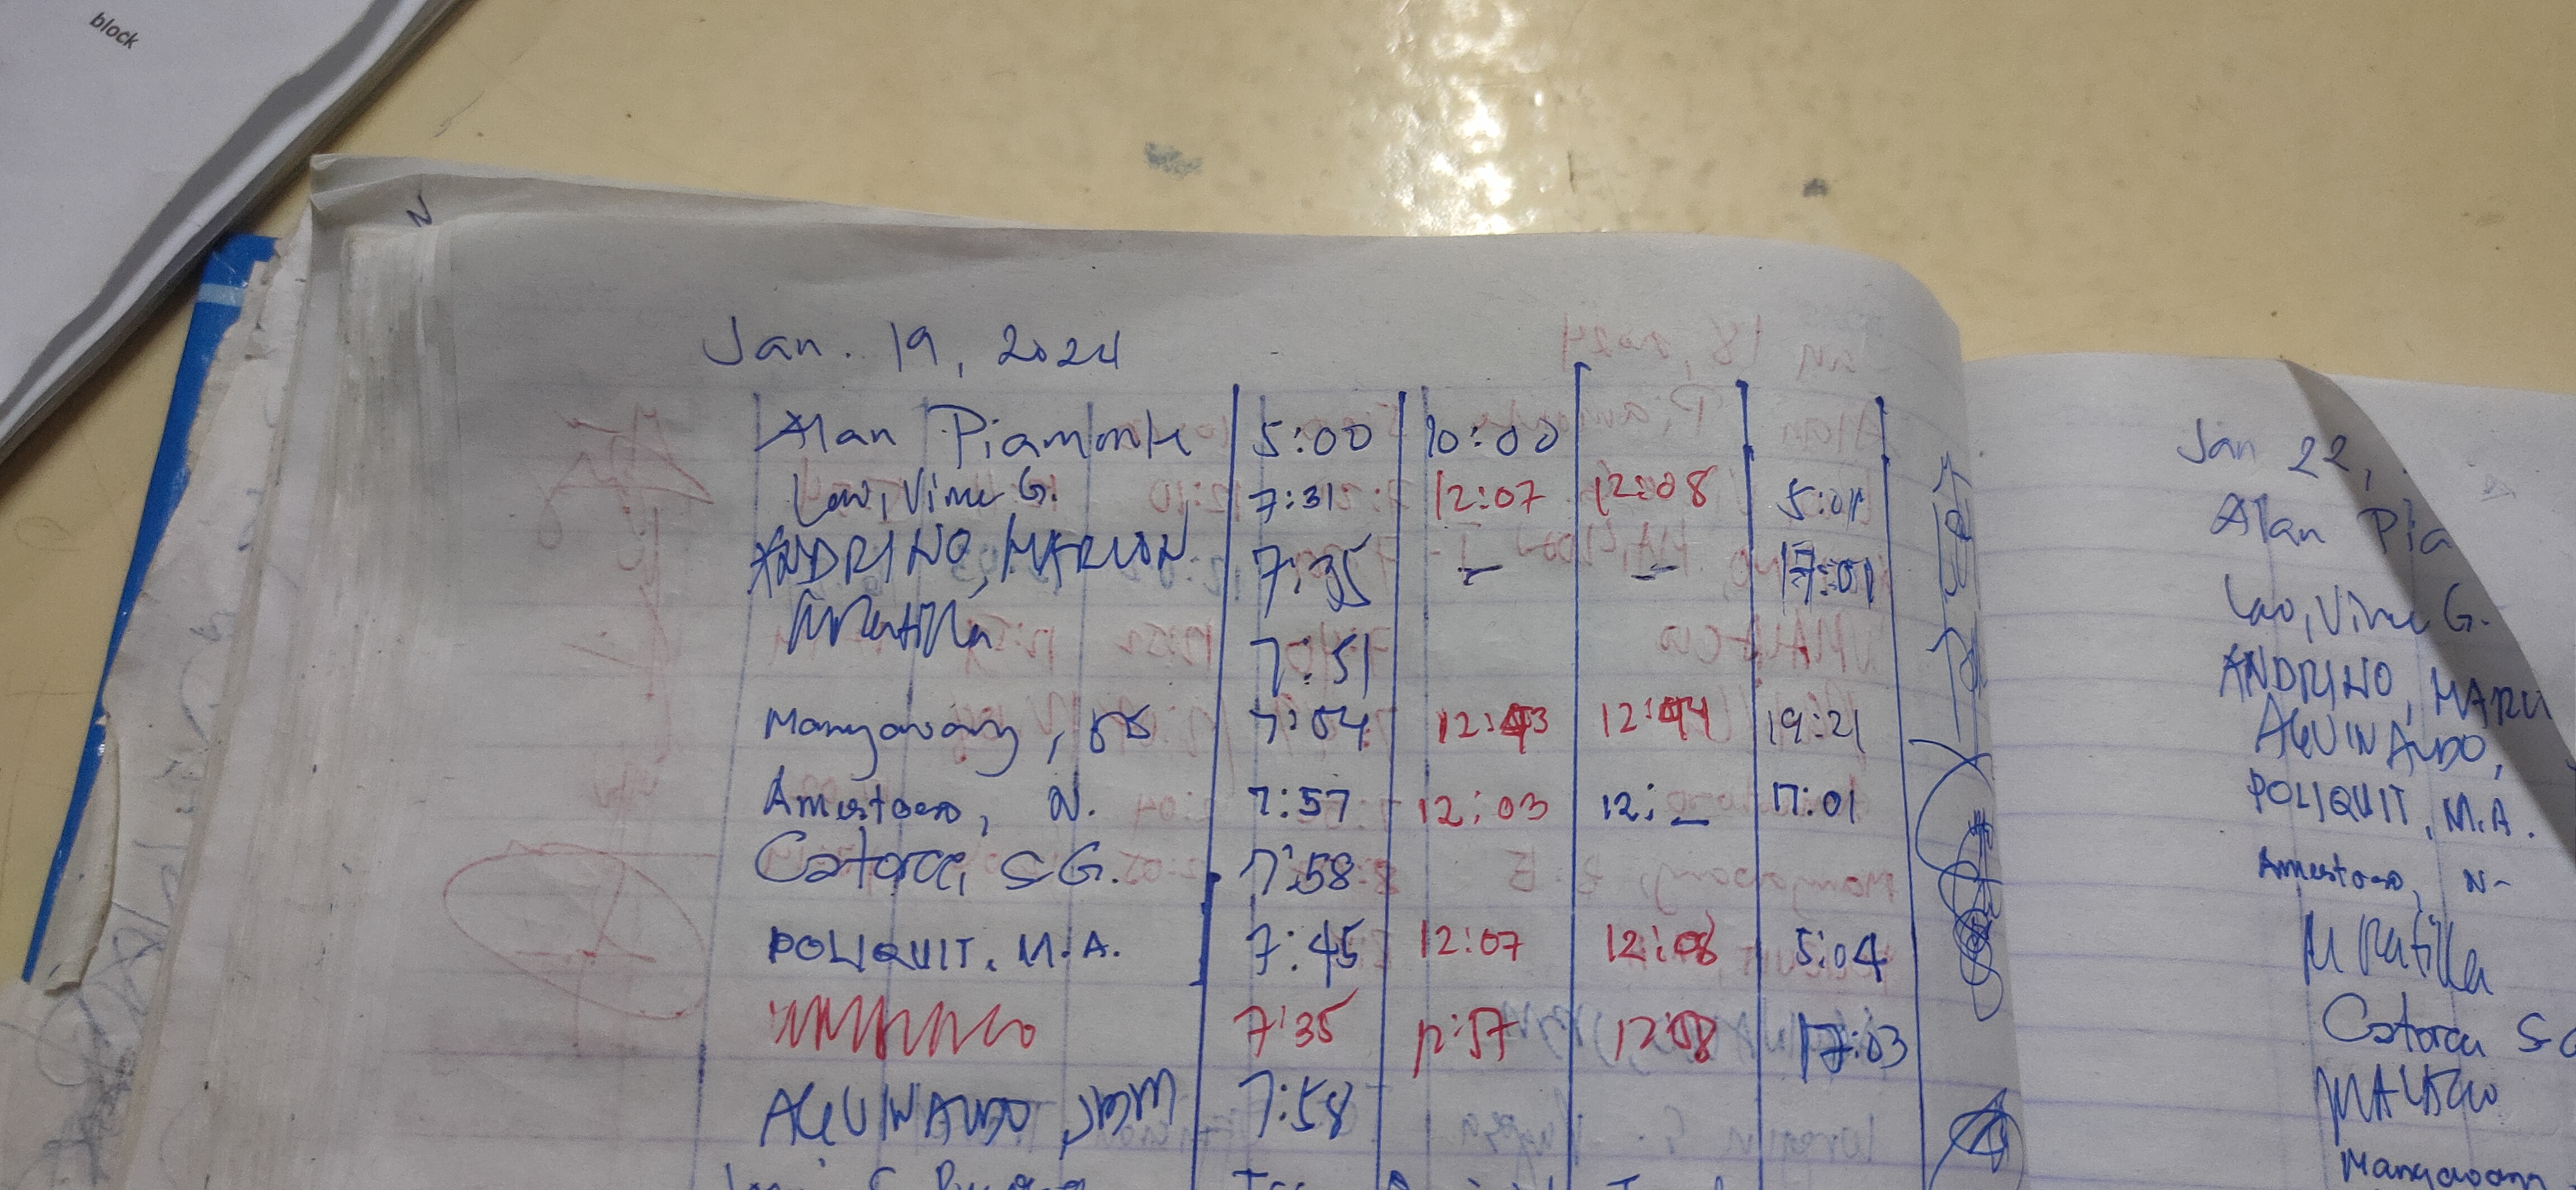 block
N
Jan. 19, 2024
Alan Piamonte 5:00 10:00
Lao, Vime G. 7:31 12:07 12:08 5:01
ANDRINO, MARLON 7:35 – – 17:01
7:51
Mangavang, 7:54 12:43 12:44 19:21
Amestoso, N. 7:57 12:03 12: – 17:01
Catorce, S G. 7:58
POLIQUIT. M.A. 7:45 12:07 12:08 5:04
7:35 12:57 12:58 17:03
AGUINALDO, JBM 7:58
Jan 22,
Alan Pia
Lao, Vime G.
ANDRINO, MARL
AGUINALDO,
POLIQUIT, M.A.
Amestoso, N-
M Ratilla
Catorce S G
MALACO